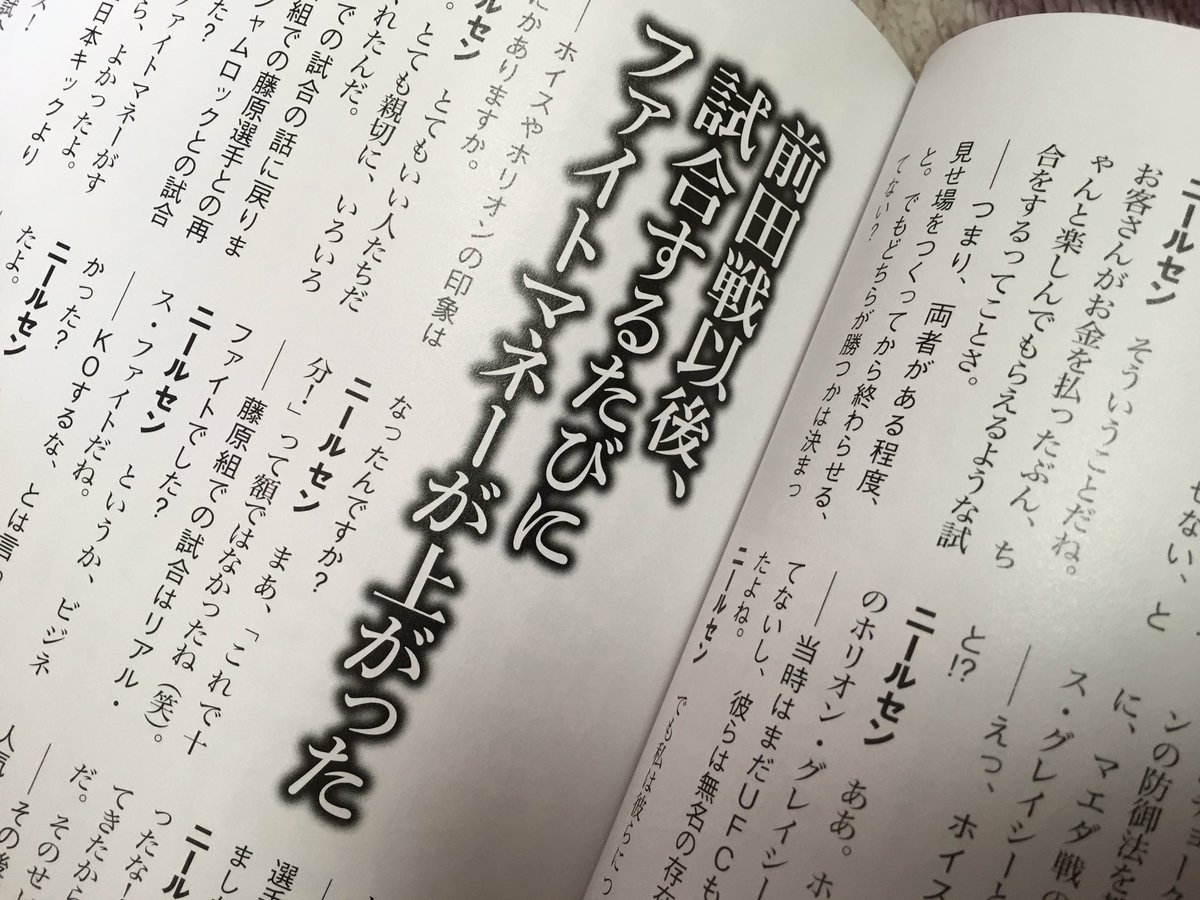 せない、と
ニールセン　そういうことだね。
お客さんがお金を払ったぶん、ち
ゃんと楽しんでもらえるような試
合をするってことさ。
――つまり、両者がある程度、
見せ場をつくってから終わらせる、
と。でもどちらが勝つかは決まっ
てない？
ンの防御法を
に、マエダ戦の
ス・グレイシーと
――えっ、ホイス
と!?
ニールセン　ああ。ホ
のホリオン・グレイシー
――当時はまだUFCも
てないし、彼らは無名の存在
たよね。
ニールセン　でも私は彼らにつ
前田戦以後、
試合するたびに
ファイトマネーが上がった
――ホイスやホリオンの印象は
にかありますか。
ニールセン　とてもいい人たちだ
。とても親切に、いろいろ
れたんだ。
での試合の話に戻りま
組での藤原選手との再
シャムロックとの試合
た？
ファイトマネーがす
ら、よかったよ。
日本キックより
なったんですか？
ニールセン　まあ、「これで十
分！」って額ではなかったね（笑）。
――藤原組での試合はリアル・
ファイトでした？
ニールセン　というか、ビジネ
ス・ファイトだね。
――KOするな、とは言
かった？
ニールセン
たよ。
人気
――その後
だ。そのせい
てきたから
ったな
ニール
まし
選手